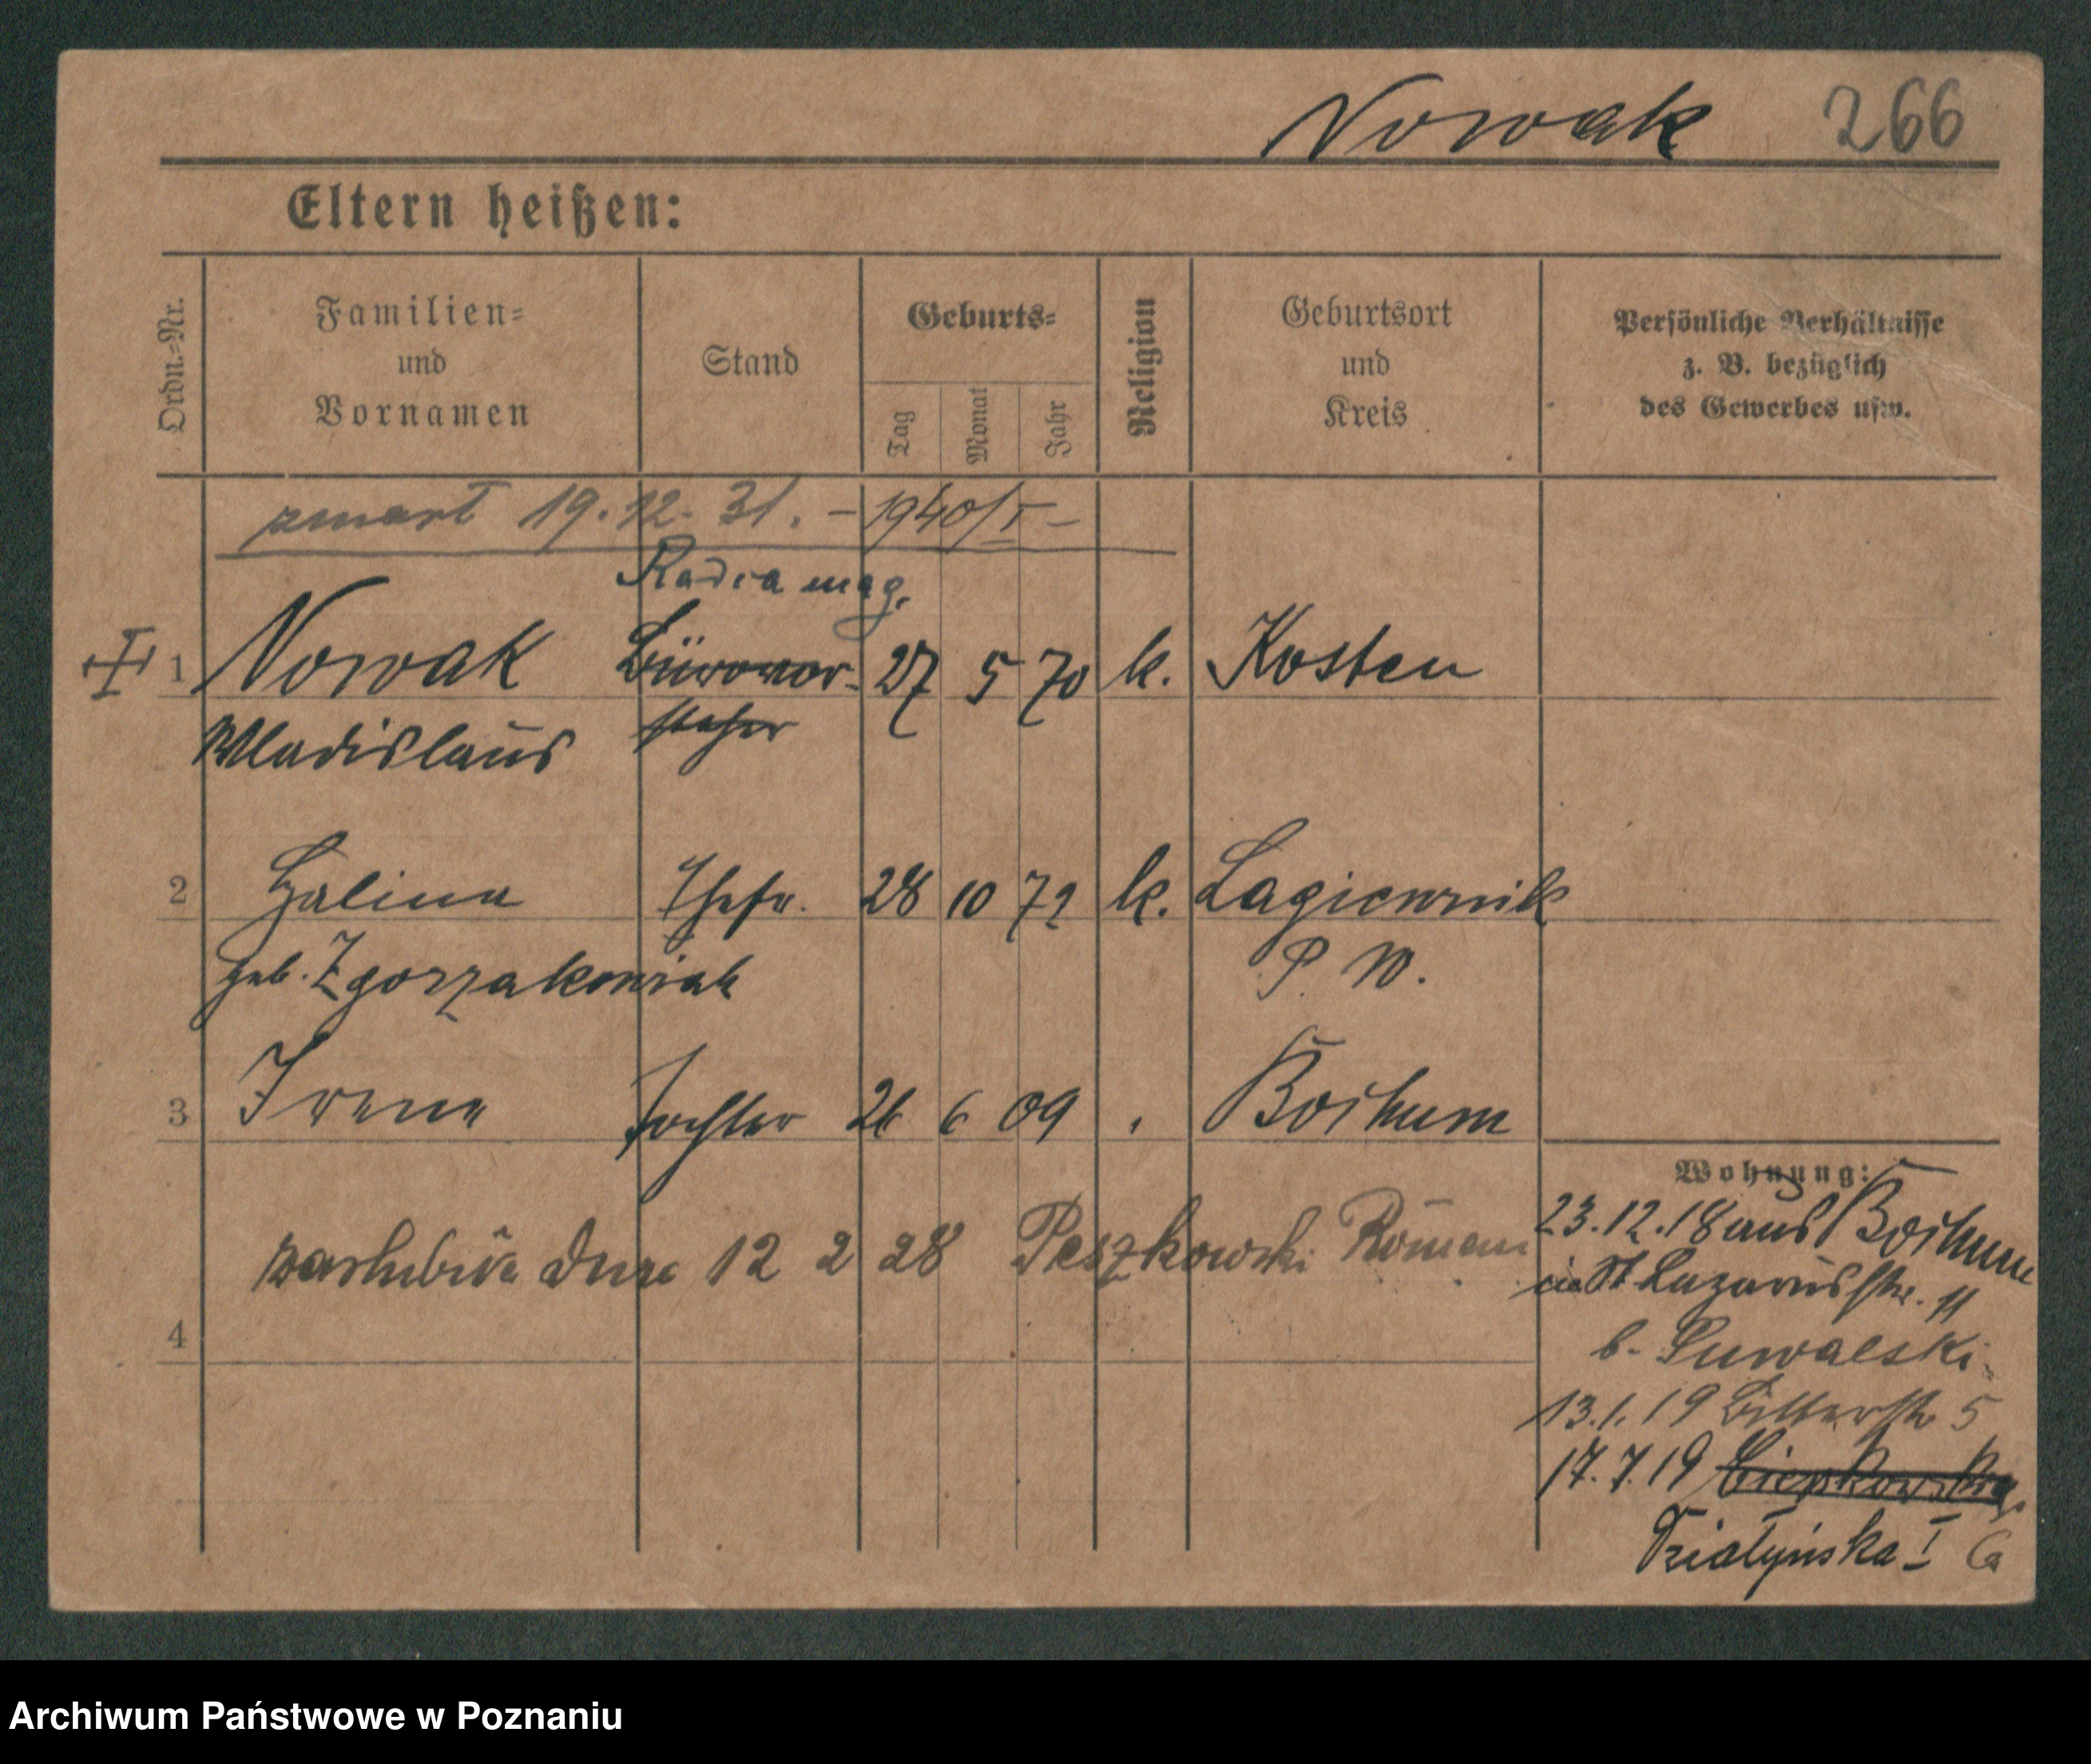 Nowak 266
Eltern heißen:
Ordn.-Nr.
Familien-
und
Vornamen
Stand
Geburts-
Tag
Monat
Jahr
Religion
Geburtsort
und
Kreis
Persönliche Verhältnisse
z. B. bezüglich
des Gewerbes usw.
zmarł 19.12.31. - 1940/I -
Radca mag.
1 Nowak Bürovor- 27 5 70 k. Kosten
Wladislaus steher
2 Halina Ehefr. 28 10 72 k. Lagiewnik
geb. Zgorzakowiak P. W.
3 Irene Tochter 26 6 09 Bochum
Wohnung:
23.12.18 aus Bochum
St Lazarusstr. 11
zaślubiła dnia 12 2 28 Peszkowski Roman
b. Suwalski
4
13.1.19 5
17.7.19
Działyńska I
Archiwum Państwowe w Poznaniu